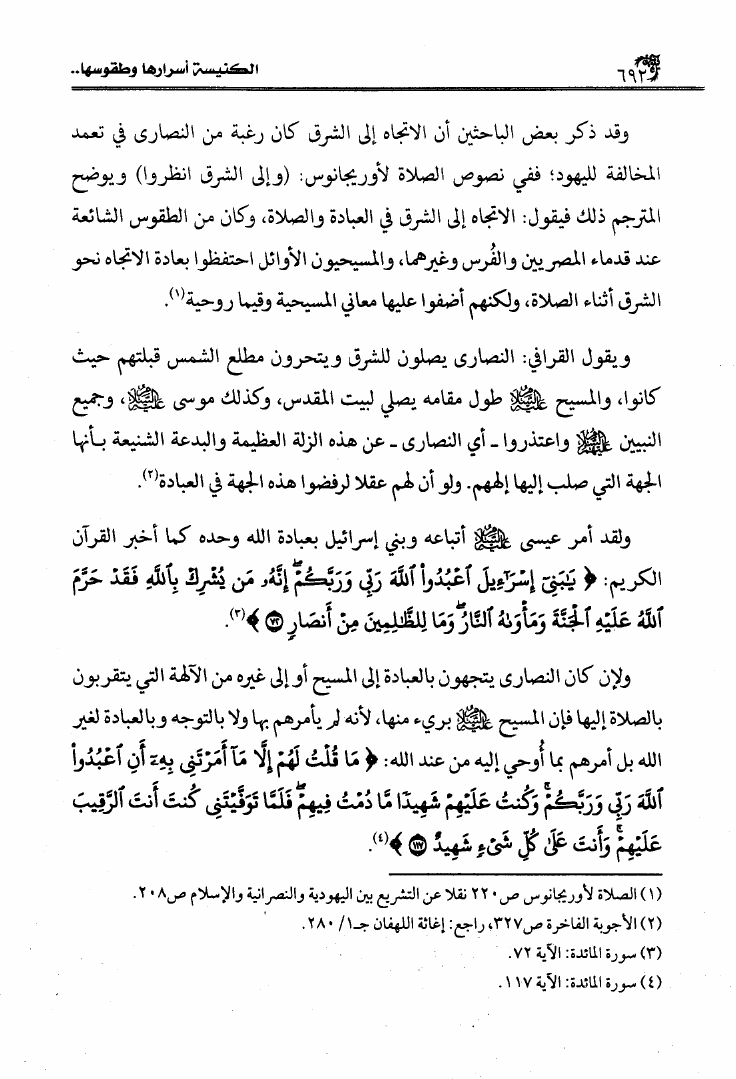 ٦٩٢
الكنيسة أسرارها وطقوسها..
وقد ذكر بعض الباحثين أن الاتجاه إلى الشرق كان رغبة من النصارى في تعمد
المخالفة لليهود؛ ففي نصوص الصلاة لأوريجانوس: (وإلى الشرق انظروا) ويوضح
المترجم ذلك فيقول: الاتجاه إلى الشرق في العبادة والصلاة، وكان من الطقوس الشائعة
عند قدماء المصريين والفُرس وغيرهما، والمسيحيون الأوائل احتفظوا بعادة الاتجاه نحو
الشرق أثناء الصلاة، ولكنهم أضفوا عليها معاني المسيحية وقيما روحية(١).
ويقول القرافي: النصارى يصلون للشرق ويتحرون مطلع الشمس قبلتهم حيث
كانوا، والمسيح عليه السلام طول مقامه يصلي لبيت المقدس، وكذلك موسى عليه السلام، وجميع
النبيين عليهم السلام واعتذروا - أي النصارى - عن هذه الزلة العظيمة والبدعة الشنيعة بأنها
الجهة التي صلب إليها إلههم. ولو أن لهم عقلا لرفضوا هذه الجهة في العبادة(٢).
ولقد أمر عيسى عليه السلام أتباعه وبني إسرائيل بعبادة الله وحده كما أخبر القرآن
الكريم: ﴿ يَٰبَنِىٓ إِسْرَٰٓءِيلَ ٱعْبُدُوا۟ ٱللَّهَ رَبِّى وَرَبَّكُمْ ۖ إِنَّهُۥ مَن يُشْرِكْ بِٱللَّهِ فَقَدْ حَرَّمَ
ٱللَّهُ عَلَيْهِ ٱلْجَنَّةَ وَمَأْوَىٰهُ ٱلنَّارُ ۖ وَمَا لِلظَّٰلِمِينَ مِنْ أَنصَارٍ ٧٢ ﴾(٣).
ولإن كان النصارى يتجهون بالعبادة إلى المسيح أو إلى غيره من الآلهة التي يتقربون
بالصلاة إليها فإن المسيح عليه السلام بريء منها، لأنه لم يأمرهم بها ولا بالتوجه وبالعبادة لغير
الله بل أمرهم بما أُوحي إليه من عند الله: ﴿ مَا قُلْتُ لَهُمْ إِلَّا مَآ أَمَرْتَنِى بِهِۦٓ أَنِ ٱعْبُدُوا۟
ٱللَّهَ رَبِّى وَرَبَّكُمْ ۚ وَكُنتُ عَلَيْهِمْ شَهِيدًا مَّا دُمْتُ فِيهِمْ ۖ فَلَمَّا تَوَفَّيْتَنِى كُنتَ أَنتَ ٱلرَّقِيبَ
عَلَيْهِمْ ۚ وَأَنتَ عَلَىٰ كُلِّ شَىْءٍ شَهِيدٌ ١١٧ ﴾(٤).
(١) الصلاة لأوريجانوس ص٢٢٠ نقلا عن التشريع بين اليهودية والنصرانية والإسلام ص٢٠٨.
(٢) الأجوبة الفاخرة ص٣٢٧، راجع: إغاثة اللهفان جـ١/ ٢٨٠.
(٣) سورة المائدة: الآية ٧٢.
(٤) سورة المائدة: الآية ١١٧.